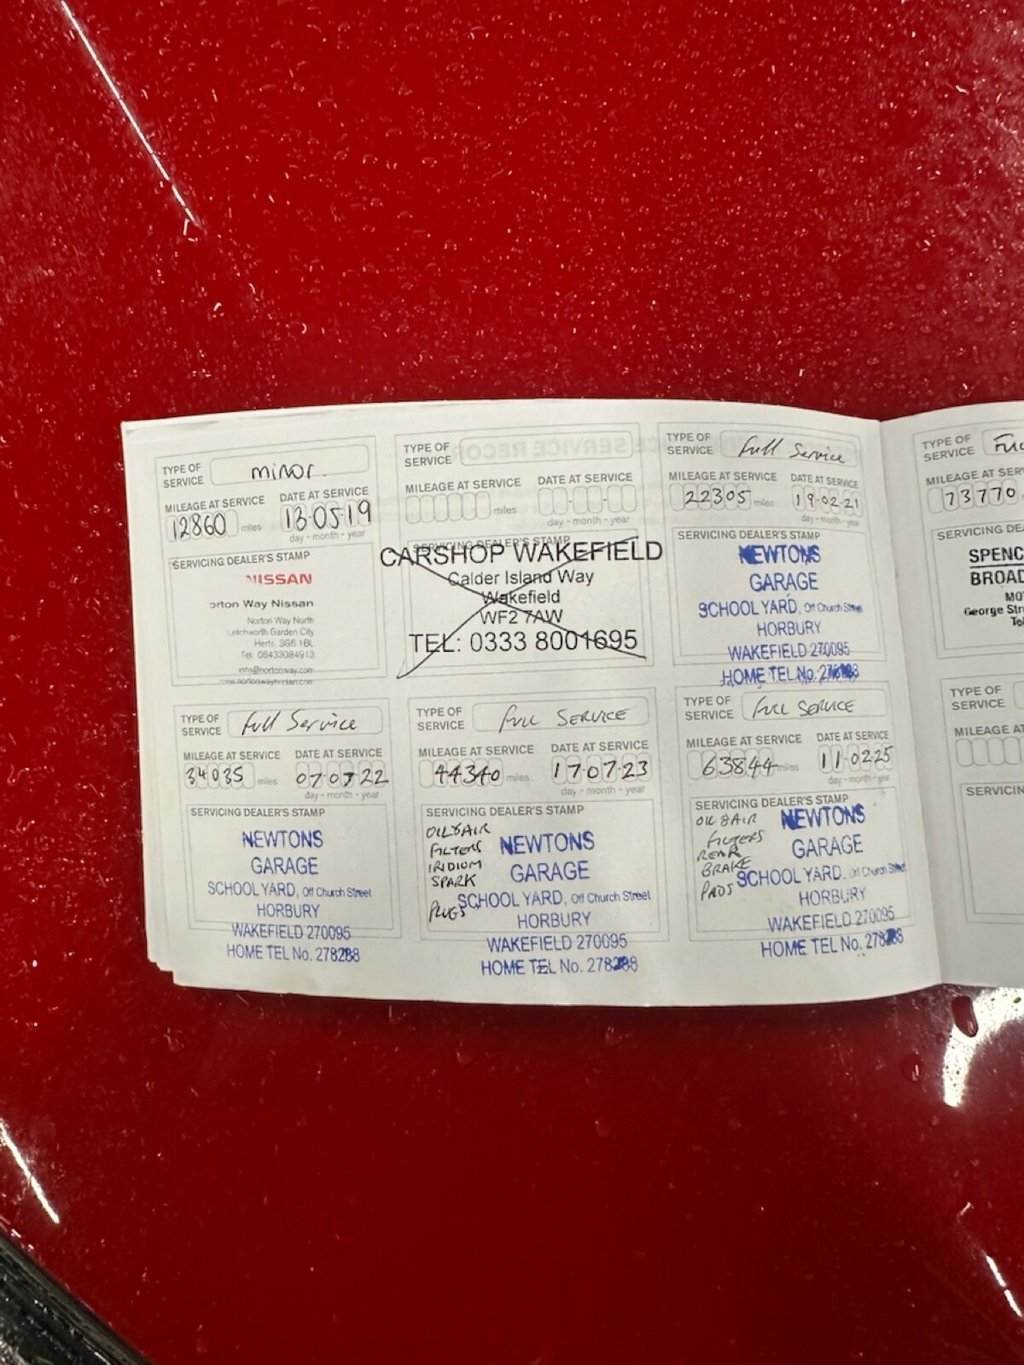 TYPE OF SERVICE minor
MILEAGE AT SERVICE DATE AT SERVICE
12860 miles 13·05·19
day - month - year
SERVICING DEALER'S STAMP
NISSAN
orton Way Nissan
Norton Way North
Letchworth Garden City
Herts SG6 1BL
Tel 08433084913
info@nortonway.com
www.nortonwaynissan.com
TYPE OF SERVICE
MILEAGE AT SERVICE DATE AT SERVICE
miles
day - month - year
SERVICING DEALER'S STAMP
CARSHOP WAKEFIELD
Calder Island Way
Wakefield
WF2 7AW
TEL: 0333 8001695
TYPE OF SERVICE Full Service
MILEAGE AT SERVICE DATE AT SERVICE
22305 miles 19·02·21
day - month - year
SERVICING DEALER'S STAMP
NEWTONS
GARAGE
SCHOOL YARD, Off Church Street
HORBURY
WAKEFIELD 270095
HOME TEL No.
TYPE OF SERVICE Full Service
MILEAGE AT SERVICE DATE AT SERVICE
34035 miles 07·07·22
day - month - year
SERVICING DEALER'S STAMP
NEWTONS
GARAGE
SCHOOL YARD, Off Church Street
HORBURY
WAKEFIELD 270095
HOME TEL No.
TYPE OF SERVICE FULL SERVICE
MILEAGE AT SERVICE DATE AT SERVICE
44340 miles 17·07·23
day - month - year
SERVICING DEALER'S STAMP
OIL & AIR
FILTERS
IRIDIUM
SPARK
PLUGS
NEWTONS
GARAGE
SCHOOL YARD, Off Church Street
HORBURY
WAKEFIELD 270095
HOME TEL No.
TYPE OF SERVICE FULL SERVICE
MILEAGE AT SERVICE DATE AT SERVICE
63844 miles 11·02·25
day - month - year
SERVICING DEALER'S STAMP
OIL & AIR
FILTERS
REAR
BRAKE
PADS
NEWTONS
GARAGE
SCHOOL YARD, Off Church Street
HORBURY
WAKEFIELD 270095
HOME TEL No.
TYPE OF SERVICE
MILEAGE AT SERV
73770
SERVICING DE
SPENC
BROAD
MO
George Str
Tel
TYPE OF SERVICE
MILEAGE AT
SERVICIN